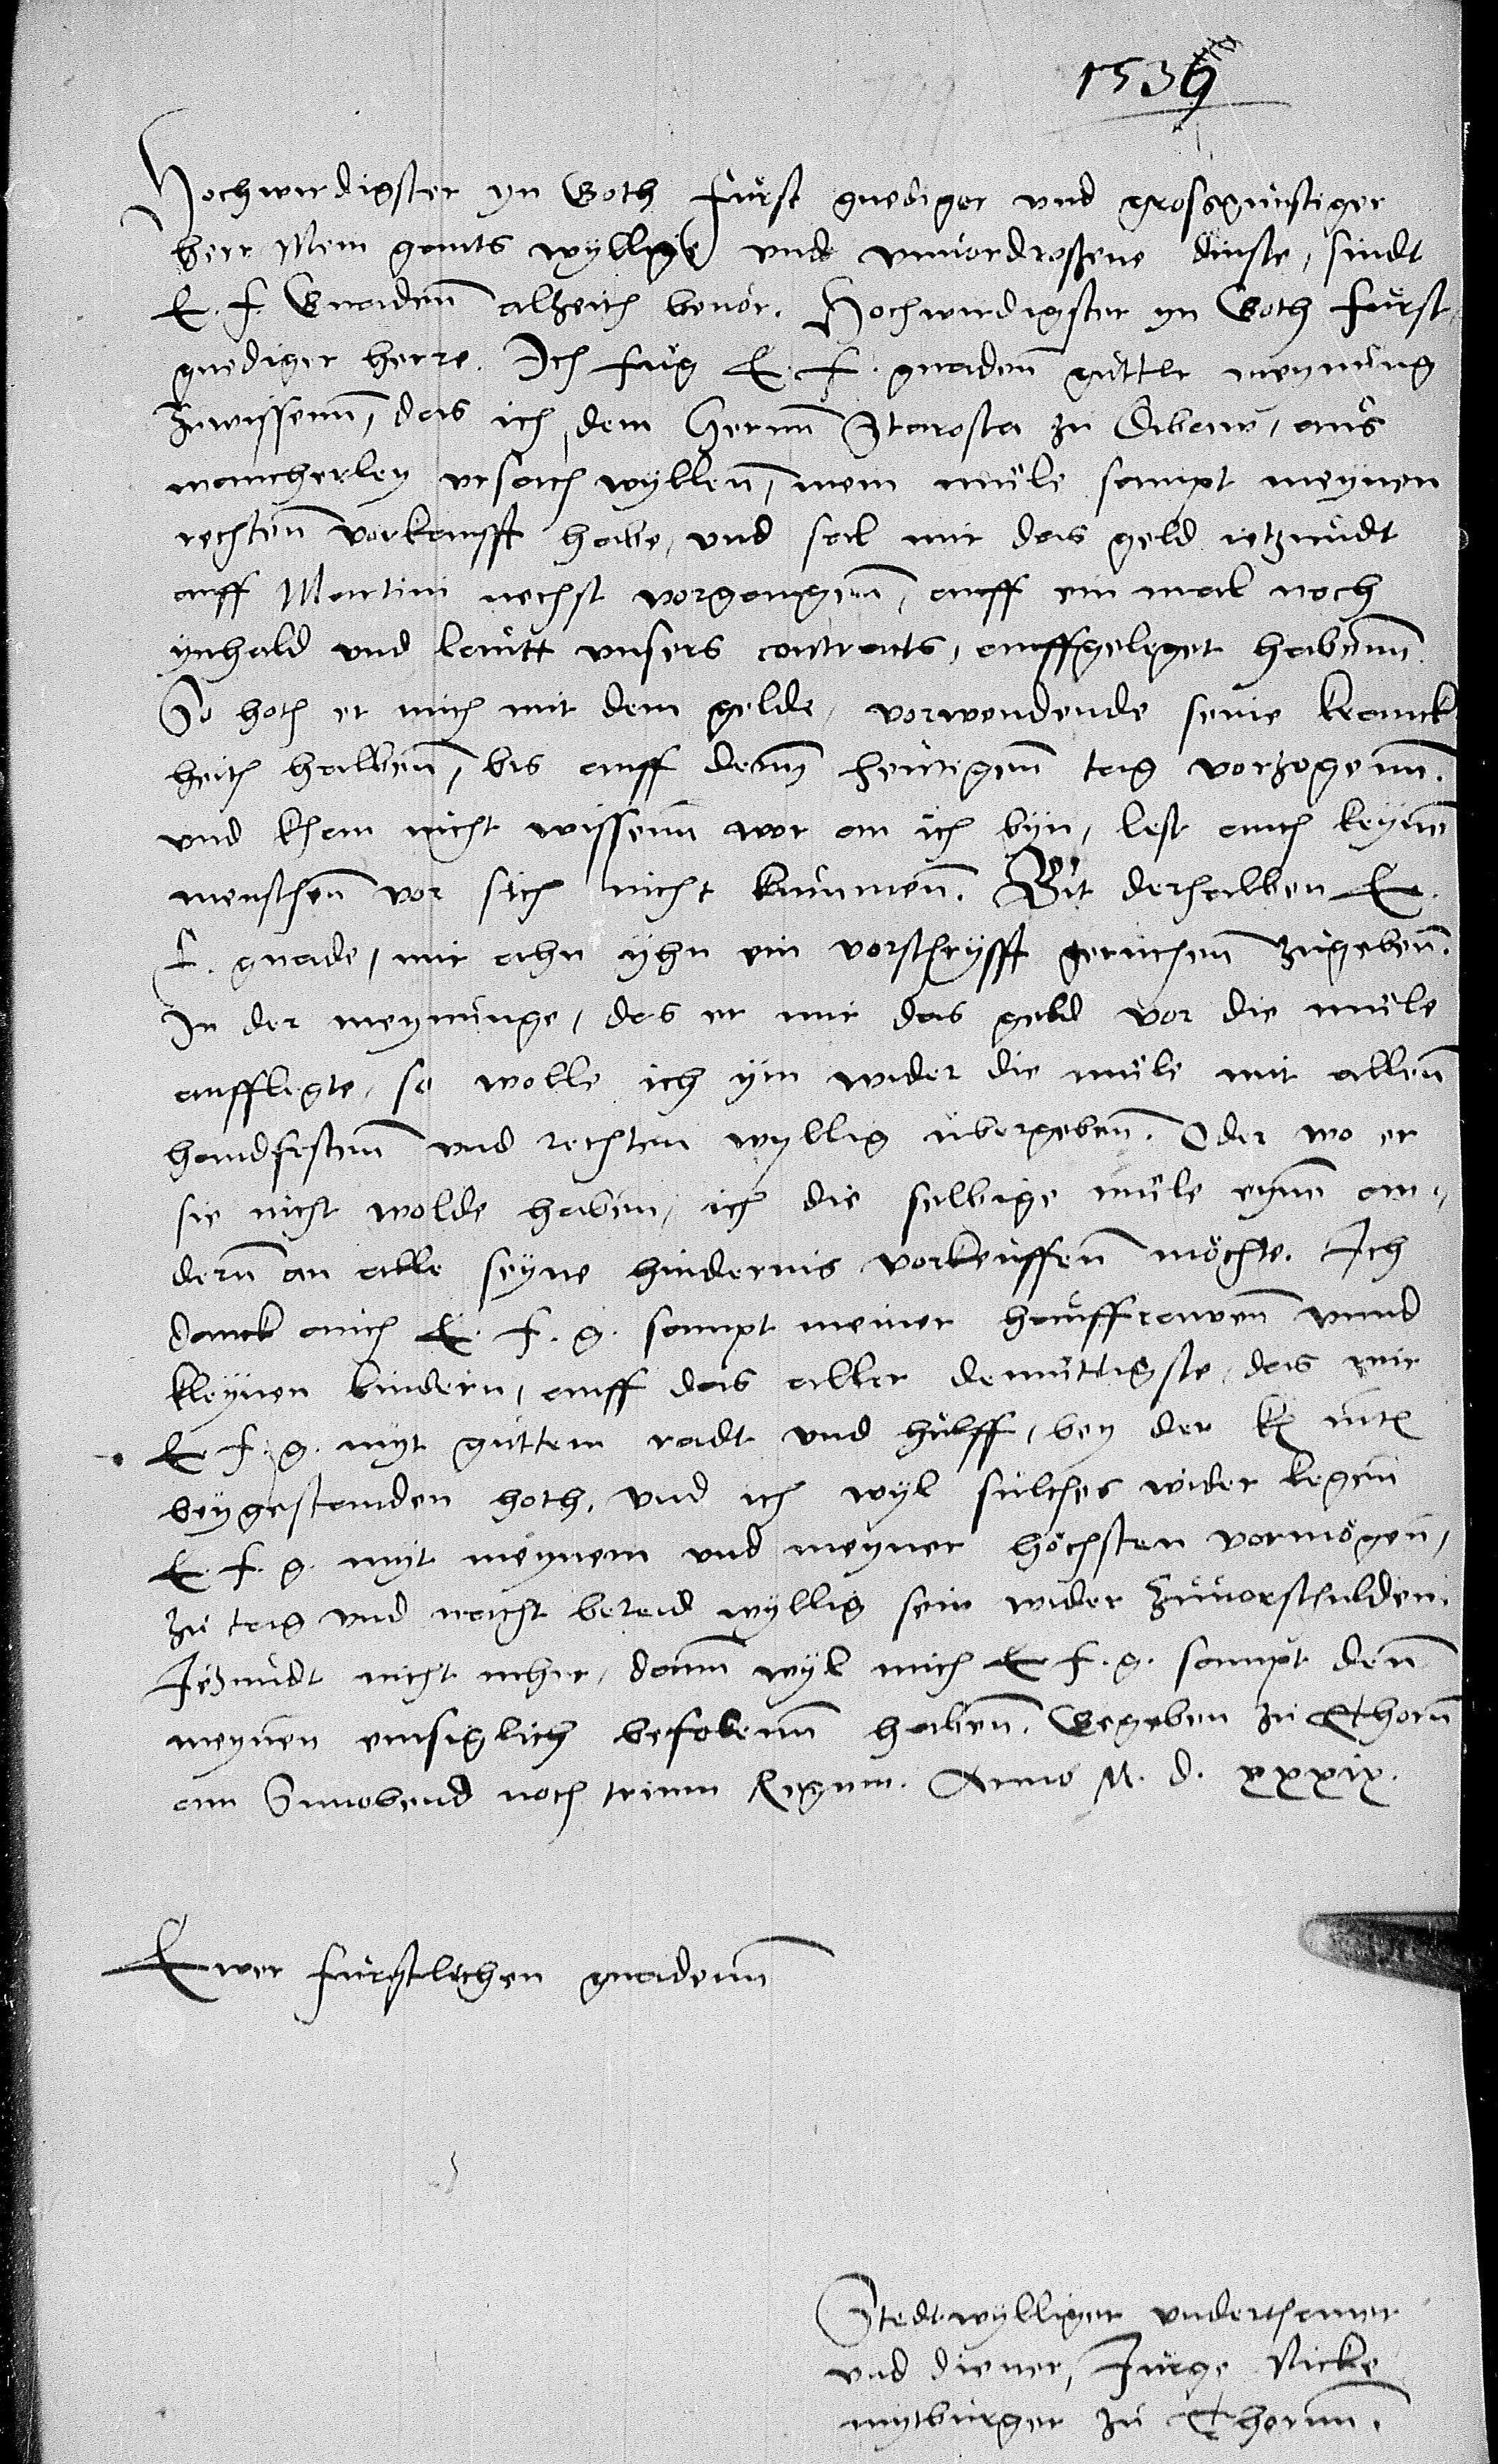 1539
Hochwirdigster yn Goth Fürst gnediger vnd grossgünstiger
herr Mein gantz wyllige vnd vnuordrossene dinste, sindt
E. f. Gnadenn alzeith beuor. Hochwirdigster yn Goth fürst,
gnediger herre. Ich fug E. f. gnadenn gutter meynung
zuwissenn, das ich dem Hernn Starosta zu Dibaw, aus
mancherley vrsach wyllenn, mein müle sampt meynen
rechtenn vorkaufft habe, vnd sal mir das geld ietzundt
auff Martini nechst vorgangenn, auff ein mal noch
ynhald vnd lautt vnsers contracts, auffgeleget habenn.
So hoth er mich mit dem gelde, vorwendende seine kranck
heith halbenn, bis auff denn heutigenn tag vorzogenn.
vnd khan nicht wissenn wor an ich byn, lest auch keynen
menschenn vor sich nicht kummen. Bit derhalben E.
f. gnade, mir ahn yhn ein vorschryfft geruchenn zugeben.
In der meynunge, das er mir das geld vor die müle
aufflegte, so wolle ich ym wider die müle mit allenn
handfestenn vnd rechten wyllig übergebenn. Oder wo er
sie nicht wolde haben, ich die selbige müle eynem an,
dernn an alle seyne hindernis vorkeuffenn möchte. Ich
danck auch E. f. g. sampt meiner hausfrawenn vnnd
kleynen kindern, auff das aller demüttigste, das mir
E. f. g. myt guttem radt vnd hülff, bey der k mt
beygestanden hoth, vnd ich wyl sülches wider kegen
E. f. g. myt meynem vnd meyner höchsten vormögen,
zu tag vnd nacht bereid wyllig sein wider zuuorschulden.
Iezundt nicht meher, dann wyl mich E. f. g. sampt denn
meynen emsiglich befolenn habenn. Gegeben zu Thorn
am Sunobend noch trium Regum. Anno M. D. xxxix.
Ewer fürstlichen gnadenn
Stedtwylliger underthaner
vnd diener, Jürge Nicke
mytbürger zu Thornn.